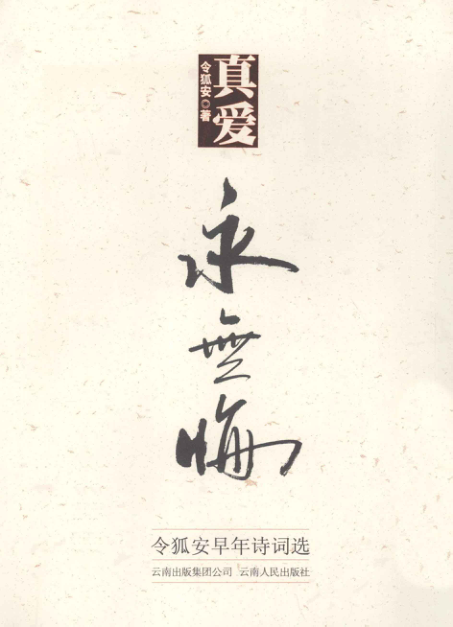 真爱
令狐安◎著
永
無
悔
令狐安早年诗词选
云南出版集团公司 云南人民出版社